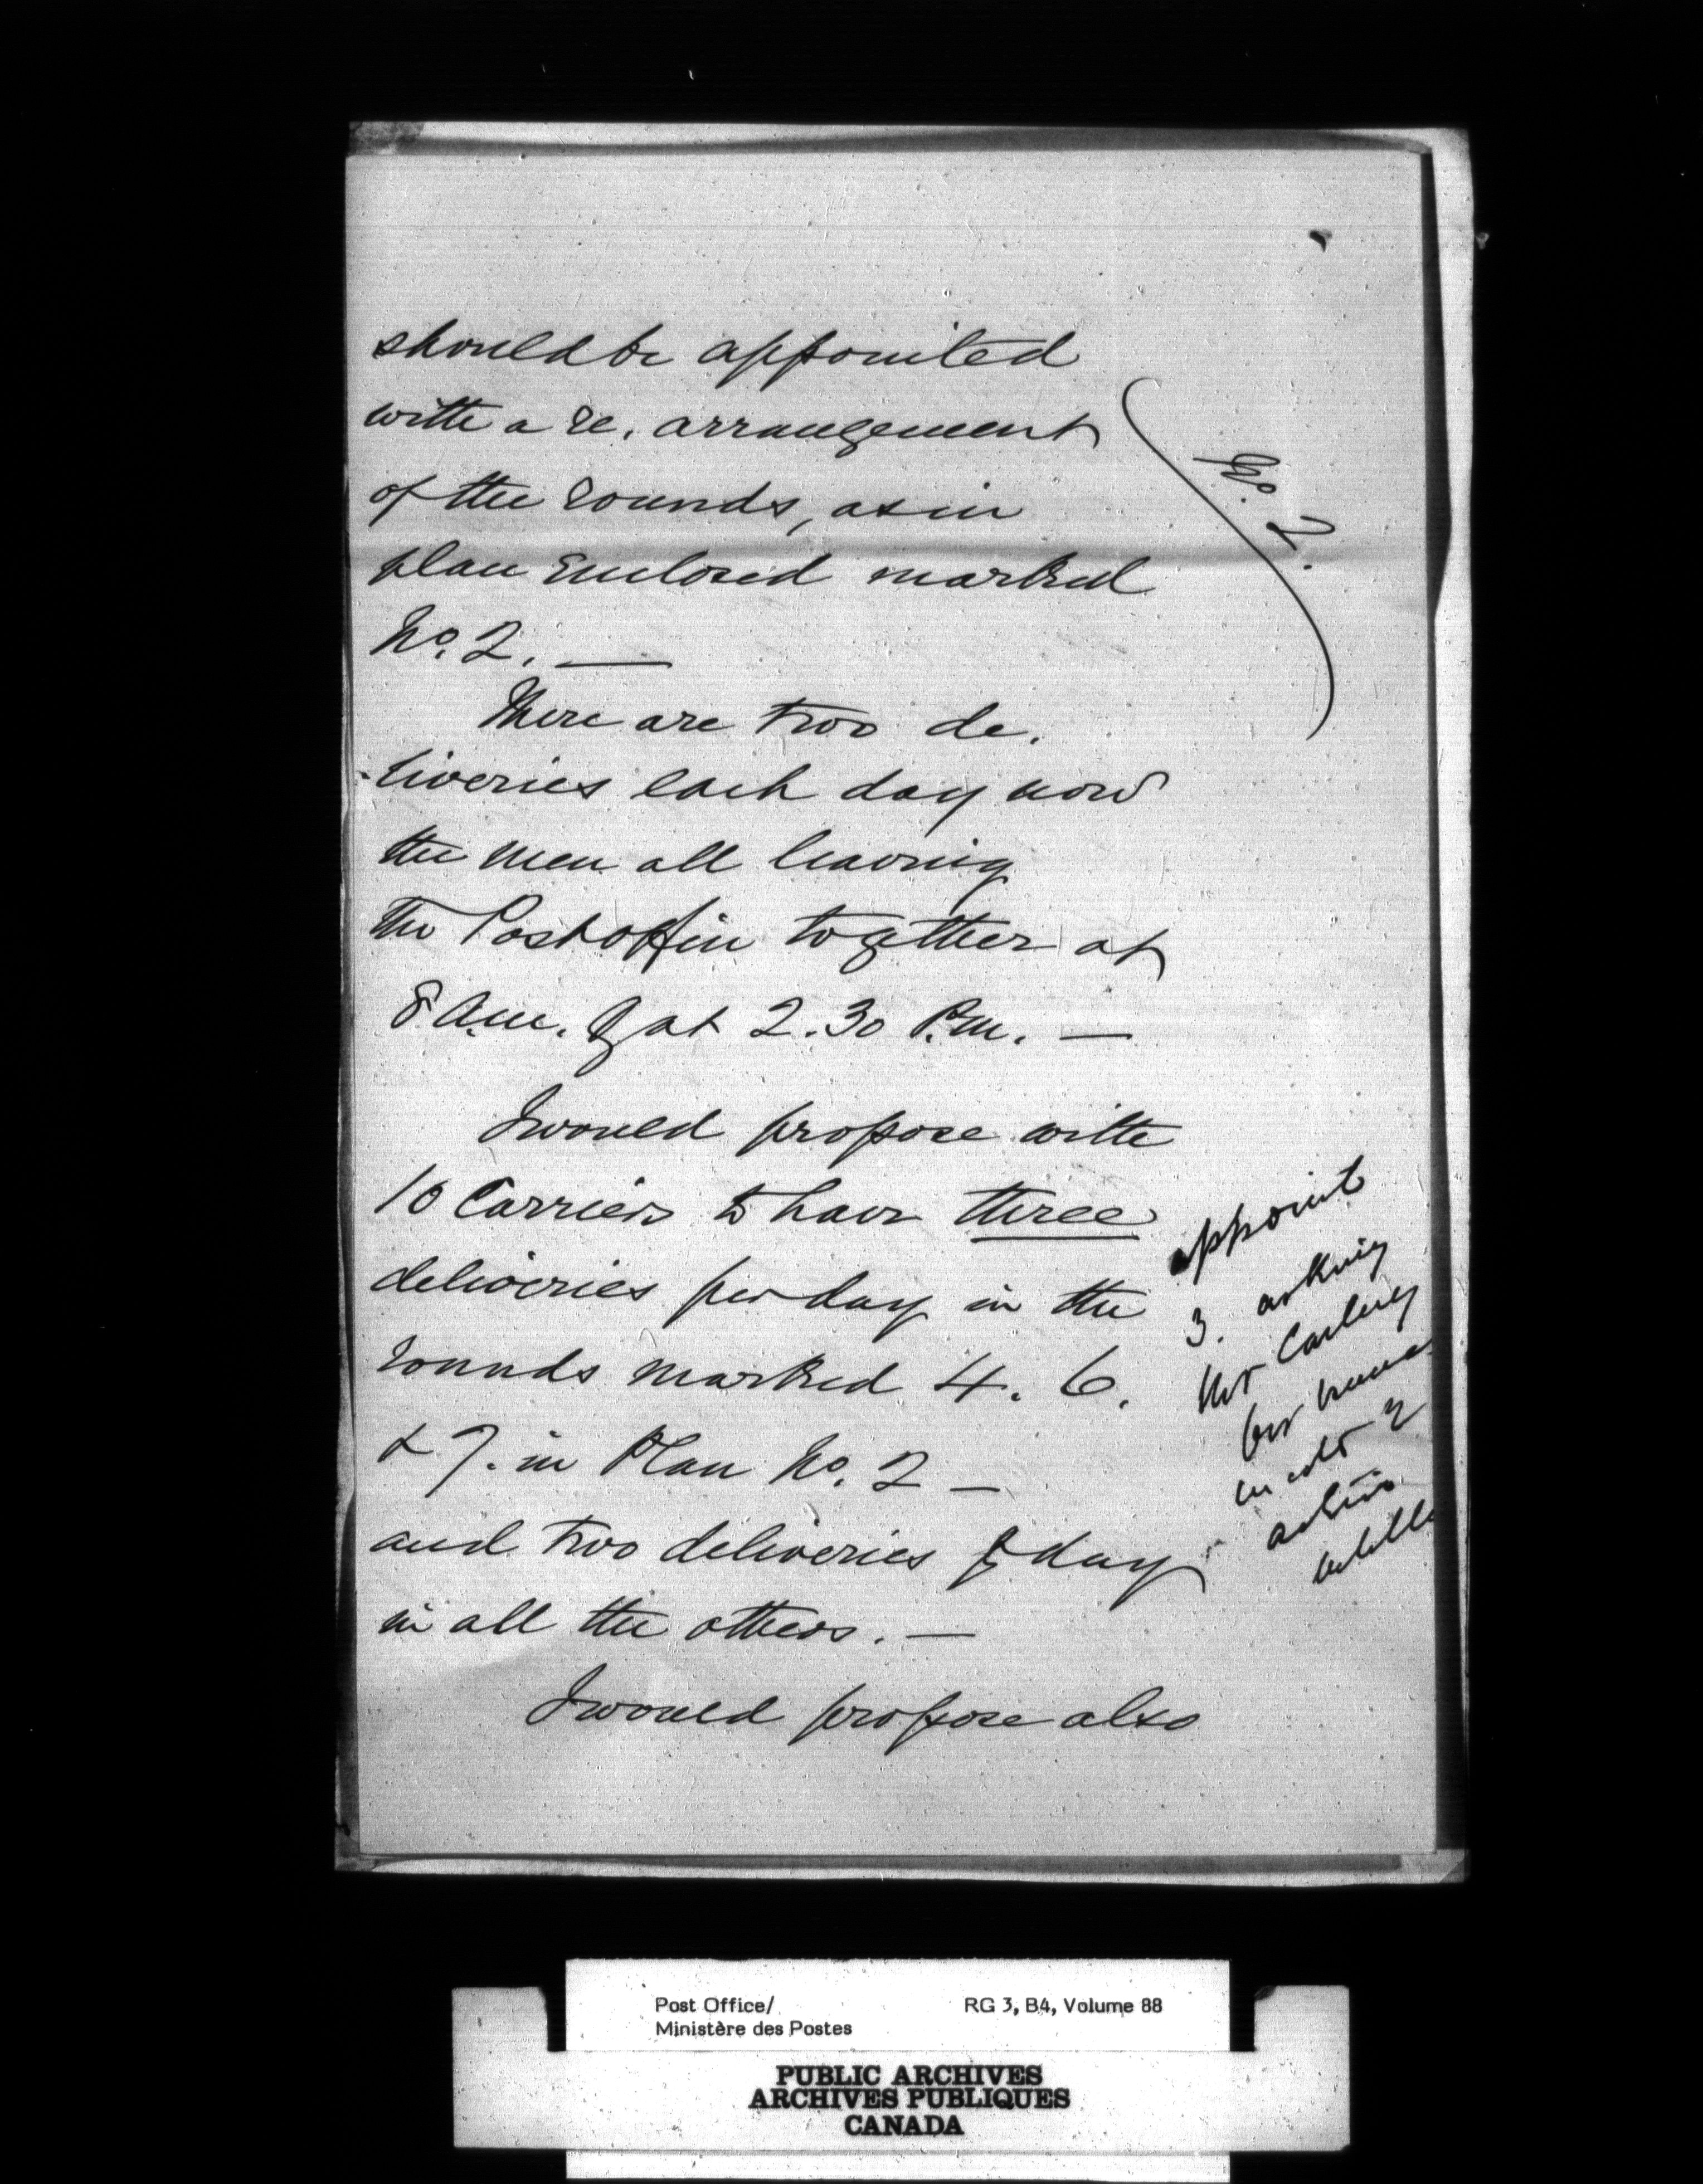 should be appointed
with a re. arrangement
of the rounds, as in
plan Enclosed marked
No. 2. —
There are two de.
liveries each day now
the men all leaving
The Post office together at
8 a.m. & at 2.30 P.m. —
I would propose with
10 Carriers to have three
deliveries per day in the
rounds marked 4. 6.
& 7. in Plan No. 2 —
and two deliveries ⅌ day
in all the others. —
I would propose also
No. 2.
appoint
3. asking
Mr Carling
for
Post Office/
Ministère des Postes
RG 3, B4, Volume 88
PUBLIC ARCHIVES
ARCHIVES PUBLIQUES
CANADA